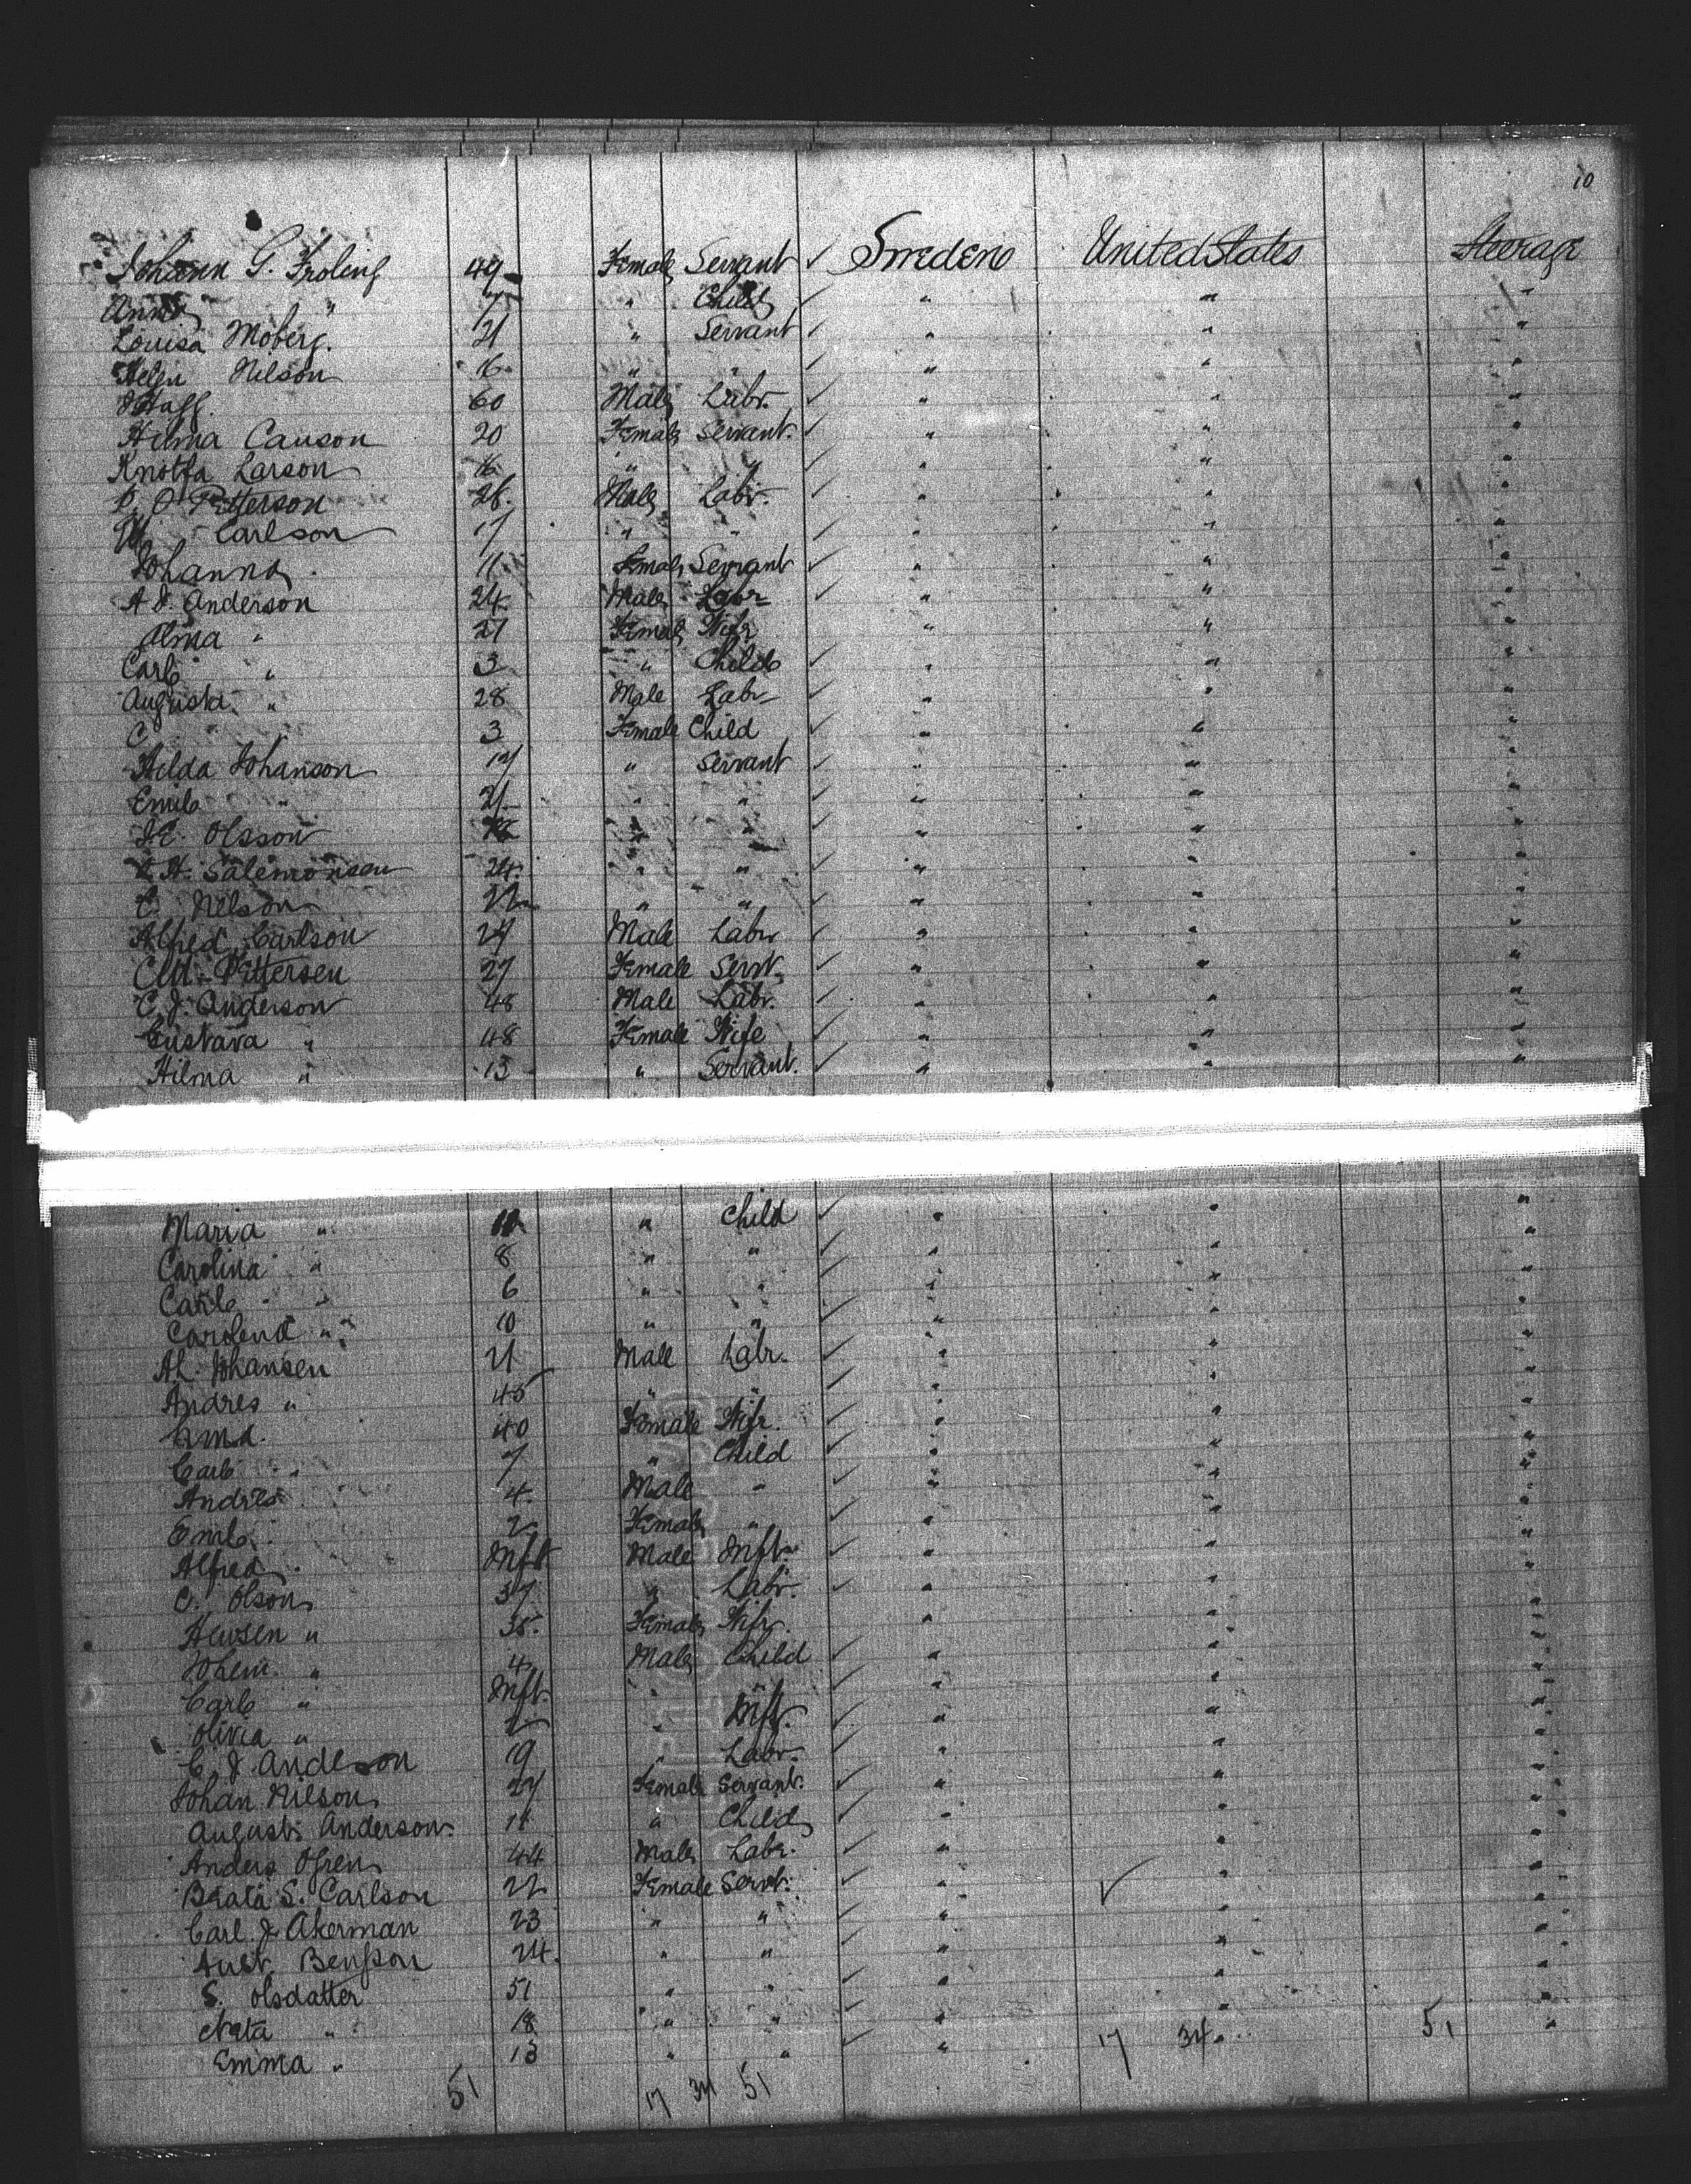 10
Johann G. Froling 49 Female Servant ✓ Sweden United States Steerage
Anna " 7 " Child ✓ " " "
Louisa Moberg. 21 " Servant ✓ " " "
Helgu Nilson 16 " " ✓ " " "
Staff. 60 Male Labr. ✓ " " "
Hilma Causon 20 Female Servant. ✓ " " "
Knotta Larson 16 " " ✓ " " "
P. O Petterson 26. Male Labr. ✓ " " "
Carlson 17 " " ✓ " " "
Johanna 11 Female Servant ✓ " " "
A J. Anderson 24 Male Labr ✓ " " "
Alma " 27 Female Wife " " "
Carl " 3 " Child ✓ " " "
Augusta " 28 Male Labr ✓ " " "
C " 3 Female Child ✓ " " "
Hilda Johanson 17 " Servant ✓ " " "
Emil " 21 " " ✓ " " "
J.E. Olsson " " ✓ " " "
H. Salemonson 24. " " ✓ " " "
C. Nelson 22 " " ✓ " " "
Alfred Carlson 27 Male Labr ✓ " " "
C.M. Pettersen 27 Female Servt. ✓ " " "
C. J. Anderson 48 Male Labr. ✓ " " "
Gustava " 48 Female Wife ✓ " " "
Hilma " 13 " Servant. ✓ " " "
Maria " " Child ✓ " " "
Carolina " 8 " " ✓ " " "
Carl " 6 " " ✓ " " "
Carolena " 10 " " ✓ " " "
A.L. Johansen 21 Male Labr. ✓ " " "
Andres " 45 " " ✓ " " "
40 Female Wife. ✓ " " "
Carl " 7 " Child ✓ " " "
Andres 4 Male " ✓ " " "
Emil 2 Female " ✓ " " "
Alfred Inft Male Inft. ✓ " " "
C. Olson 37 " Labr. ✓ " " "
" 35. Female Wife. " " "
" 4 Male Child ✓ " " "
Carl " Inft. " ✓ " " "
Olivia " 2 " Inft. ✓ " " "
C. J. Anderson 19 " Labr. ✓ " " "
Johan Nilson 27 Female Servant. ✓ " " "
August Anderson. 11 " Child ✓ " " "
Anders Ofren 44 Male Labr. ✓ " " "
Beata S. Carlson 22 Female Servt. ✓ " ✓ " "
Carl J. Akerman 23 " " ✓ " " "
Aust. Bengson 24. " " ✓ " " "
S. Olsdatter 51 " " ✓ " " "
" 18 " " ✓ " " "
Emma " 13 " " ✓ " 17 34 51 "
51 17 34 51